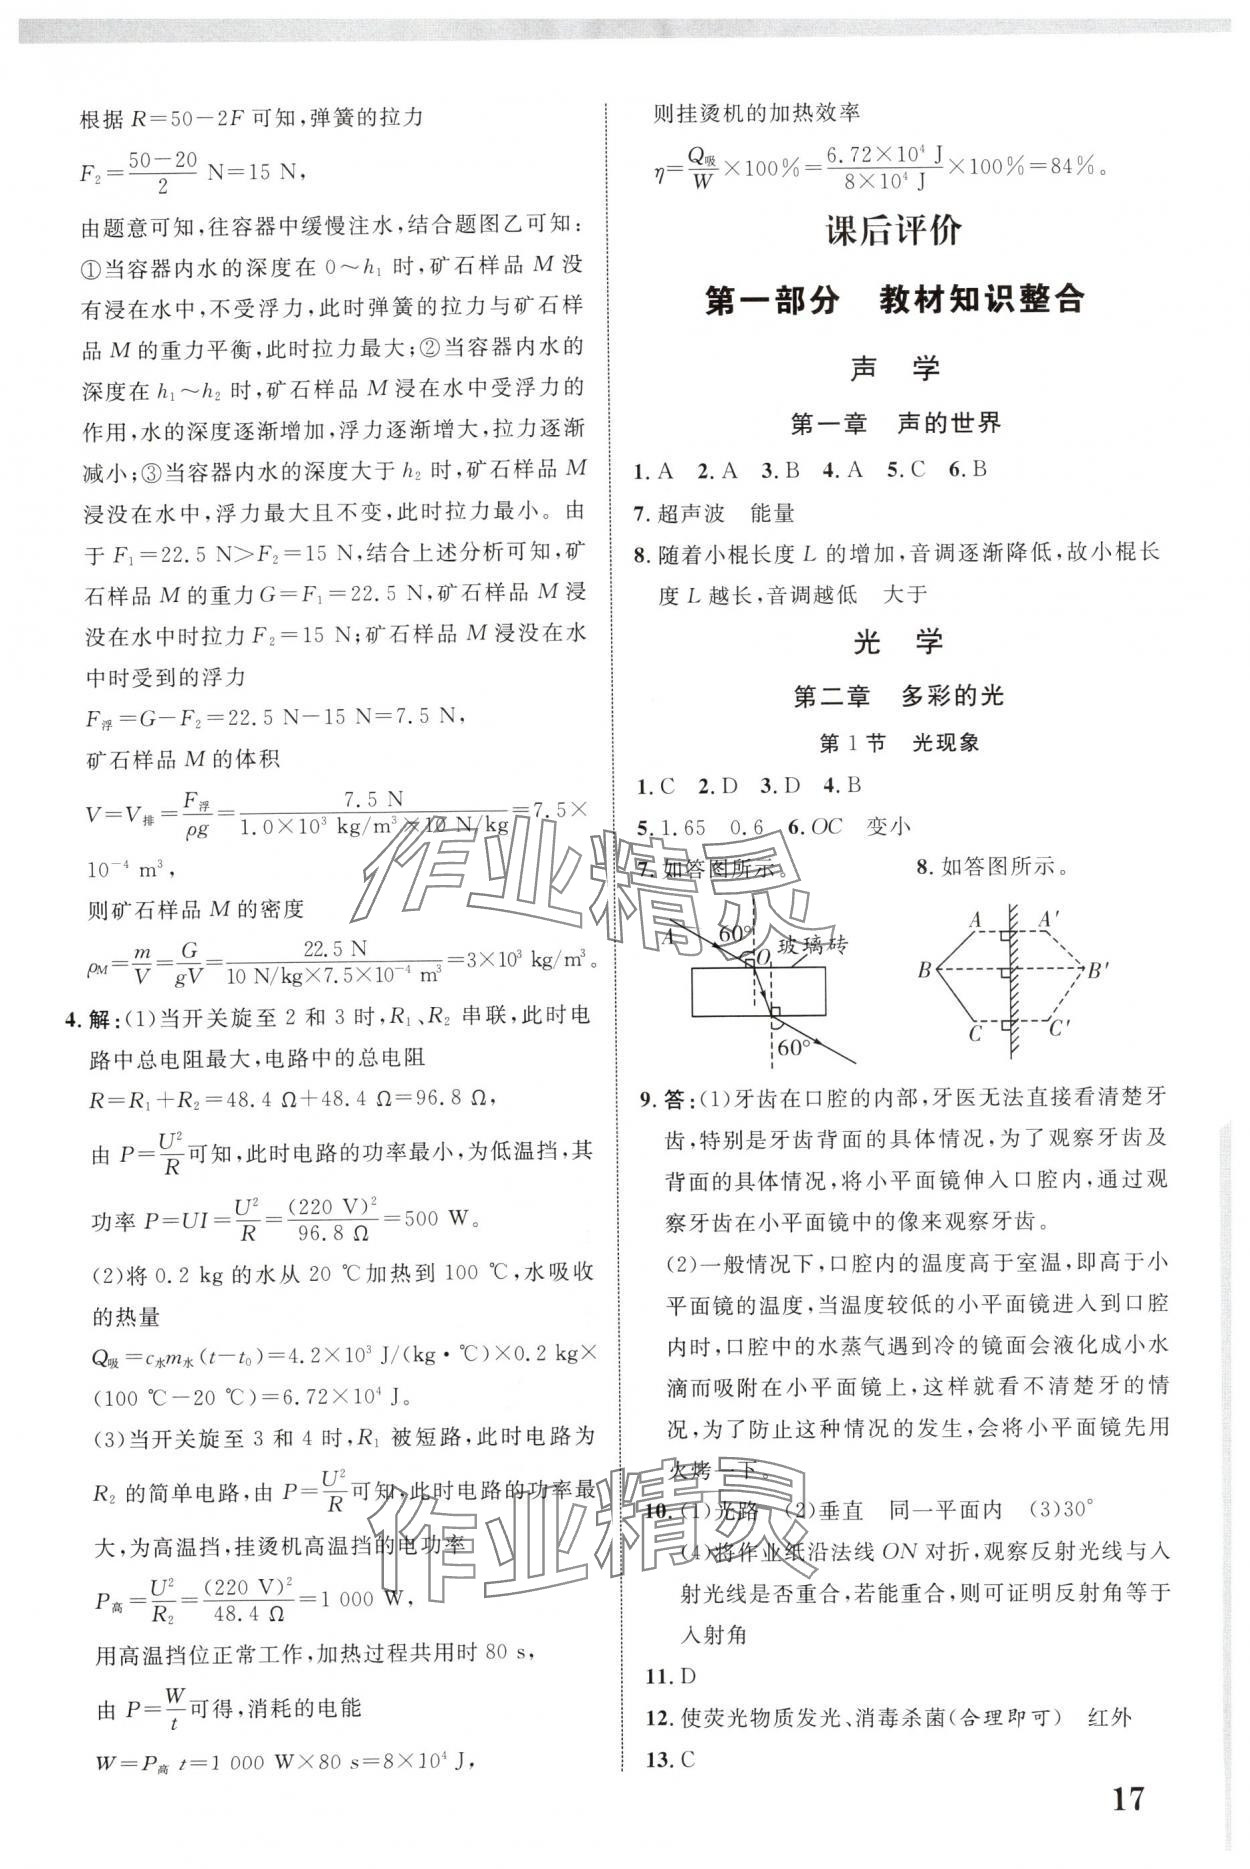 根据 R=50-2F 可知,弹簧的拉力
F₂=(50-20)/2 N=15 N,
由题意可知,往容器中缓慢注水,结合题图乙可知:
①当容器内水的深度在 0～h₁ 时,矿石样品 M 没
有浸在水中,不受浮力,此时弹簧的拉力与矿石样
品 M 的重力平衡,此时拉力最大;②当容器内水的
深度在 h₁～h₂ 时,矿石样品 M 浸在水中受浮力的
作用,水的深度逐渐增加,浮力逐渐增大,拉力逐渐
减小;③当容器内水的深度大于 h₂ 时,矿石样品 M
浸没在水中,浮力最大且不变,此时拉力最小。由
于 F₁=22.5 N>F₂=15 N,结合上述分析可知,矿
石样品 M 的重力 G=F₁=22.5 N,矿石样品 M 浸
没在水中时拉力 F₂=15 N;矿石样品 M 浸没在水
中时受到的浮力
F浮=G-F₂=22.5 N-15 N=7.5 N,
矿石样品 M 的体积
V=V排=F浮/ρg=7.5 N/(1.0×10³ kg/m³×10 N/kg)=7.5×
10⁻⁴ m³,
则矿石样品 M 的密度
ρM=m/V=G/gV=22.5 N/(10 N/kg×7.5×10⁻⁴ m³)=3×10³ kg/m³。
4. 解:(1)当开关旋至 2 和 3 时,R₁、R₂ 串联,此时电
路中总电阻最大,电路中的总电阻
R=R₁+R₂=48.4 Ω+48.4 Ω=96.8 Ω,
由 P=U²/R 可知,此时电路的功率最小,为低温挡,其
功率 P=UI=U²/R=(220 V)²/96.8 Ω=500 W。
(2)将 0.2 kg 的水从 20 ℃加热到 100 ℃,水吸收
的热量
Q吸=c水m水(t-t₀)=4.2×10³ J/(kg·℃)×0.2 kg×
(100 ℃-20 ℃)=6.72×10⁴ J。
(3)当开关旋至 3 和 4 时,R₁ 被短路,此时电路为
R₂ 的简单电路,由 P=U²/R 可知,此时电路的功率最
大,为高温挡,挂烫机高温挡的电功率
P高=U²/R₂=(220 V)²/48.4 Ω=1 000 W,
用高温挡位正常工作,加热过程共用时 80 s,
由 P=W/t 可得,消耗的电能
W=P高 t=1 000 W×80 s=8×10⁴ J,
则挂烫机的加热效率
η=Q吸/W×100%=(6.72×10⁴ J)/(8×10⁴ J)×100%=84%。
课后评价
第一部分 教材知识整合
声 学
第一章 声的世界
1. A 2. A 3. B 4. A 5. C 6. B
7. 超声波 能量
8. 随着小棍长度 L 的增加,音调逐渐降低,故小棍长
度 L 越长,音调越低 大于
光 学
第二章 多彩的光
第 1 节 光现象
1. C 2. D 3. D 4. B
5. 1.65 0.6 6. OC 变小
7. 如答图所示。 8. 如答图所示。
A 60° O 玻璃砖
60°
A A′
B B′
C C′
9. 答:(1)牙齿在口腔的内部,牙医无法直接看清楚牙
齿,特别是牙齿背面的具体情况,为了观察牙齿及
背面的具体情况,将小平面镜伸入口腔内,通过观
察牙齿在小平面镜中的像来观察牙齿。
(2)一般情况下,口腔内的温度高于室温,即高于小
平面镜的温度,当温度较低的小平面镜进入到口腔
内时,口腔中的水蒸气遇到冷的镜面会液化成小水
滴而吸附在小平面镜上,这样就看不清楚牙的情
况,为了防止这种情况的发生,会将小平面镜先用
火烤一下。
10. (1)光路 (2)垂直 同一平面内 (3)30°
(4)将作业纸沿法线 ON 对折,观察反射光线与入
射光线是否重合,若能重合,则可证明反射角等于
入射角
11. D
12. 使荧光物质发光、消毒杀菌(合理即可) 红外
13. C
17
作业精灵
作业精灵